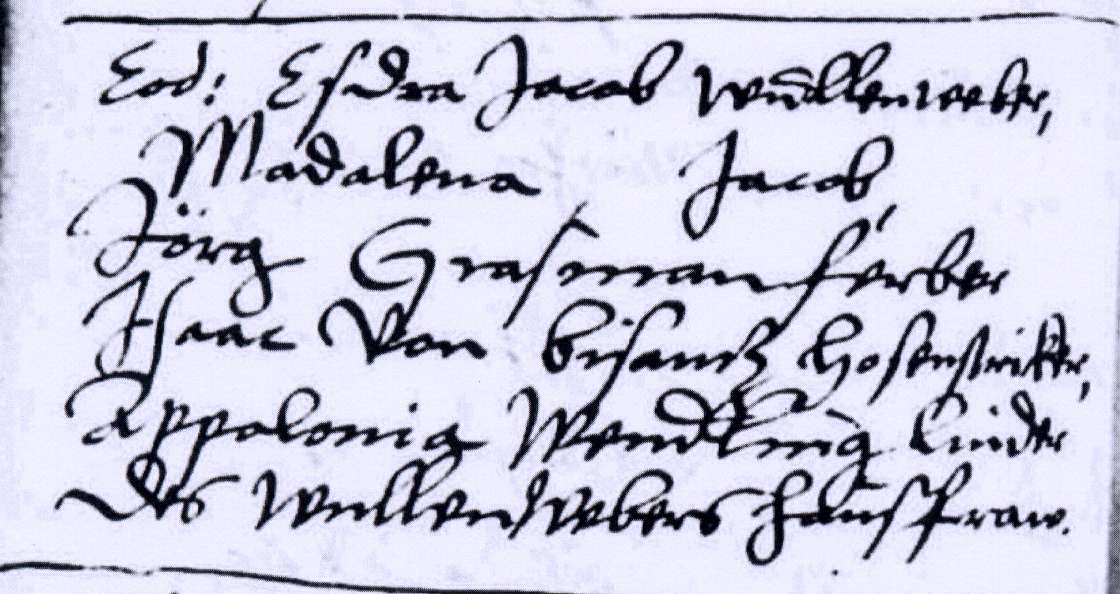 Eod: Esdra Jacob wŭllenweber,
Madalena Jacob,
Jörg Grasman ferber
Isaac Von bisantz hosenstricker,
Appolonia Wendling linder
des wullenwebers hausfraw.